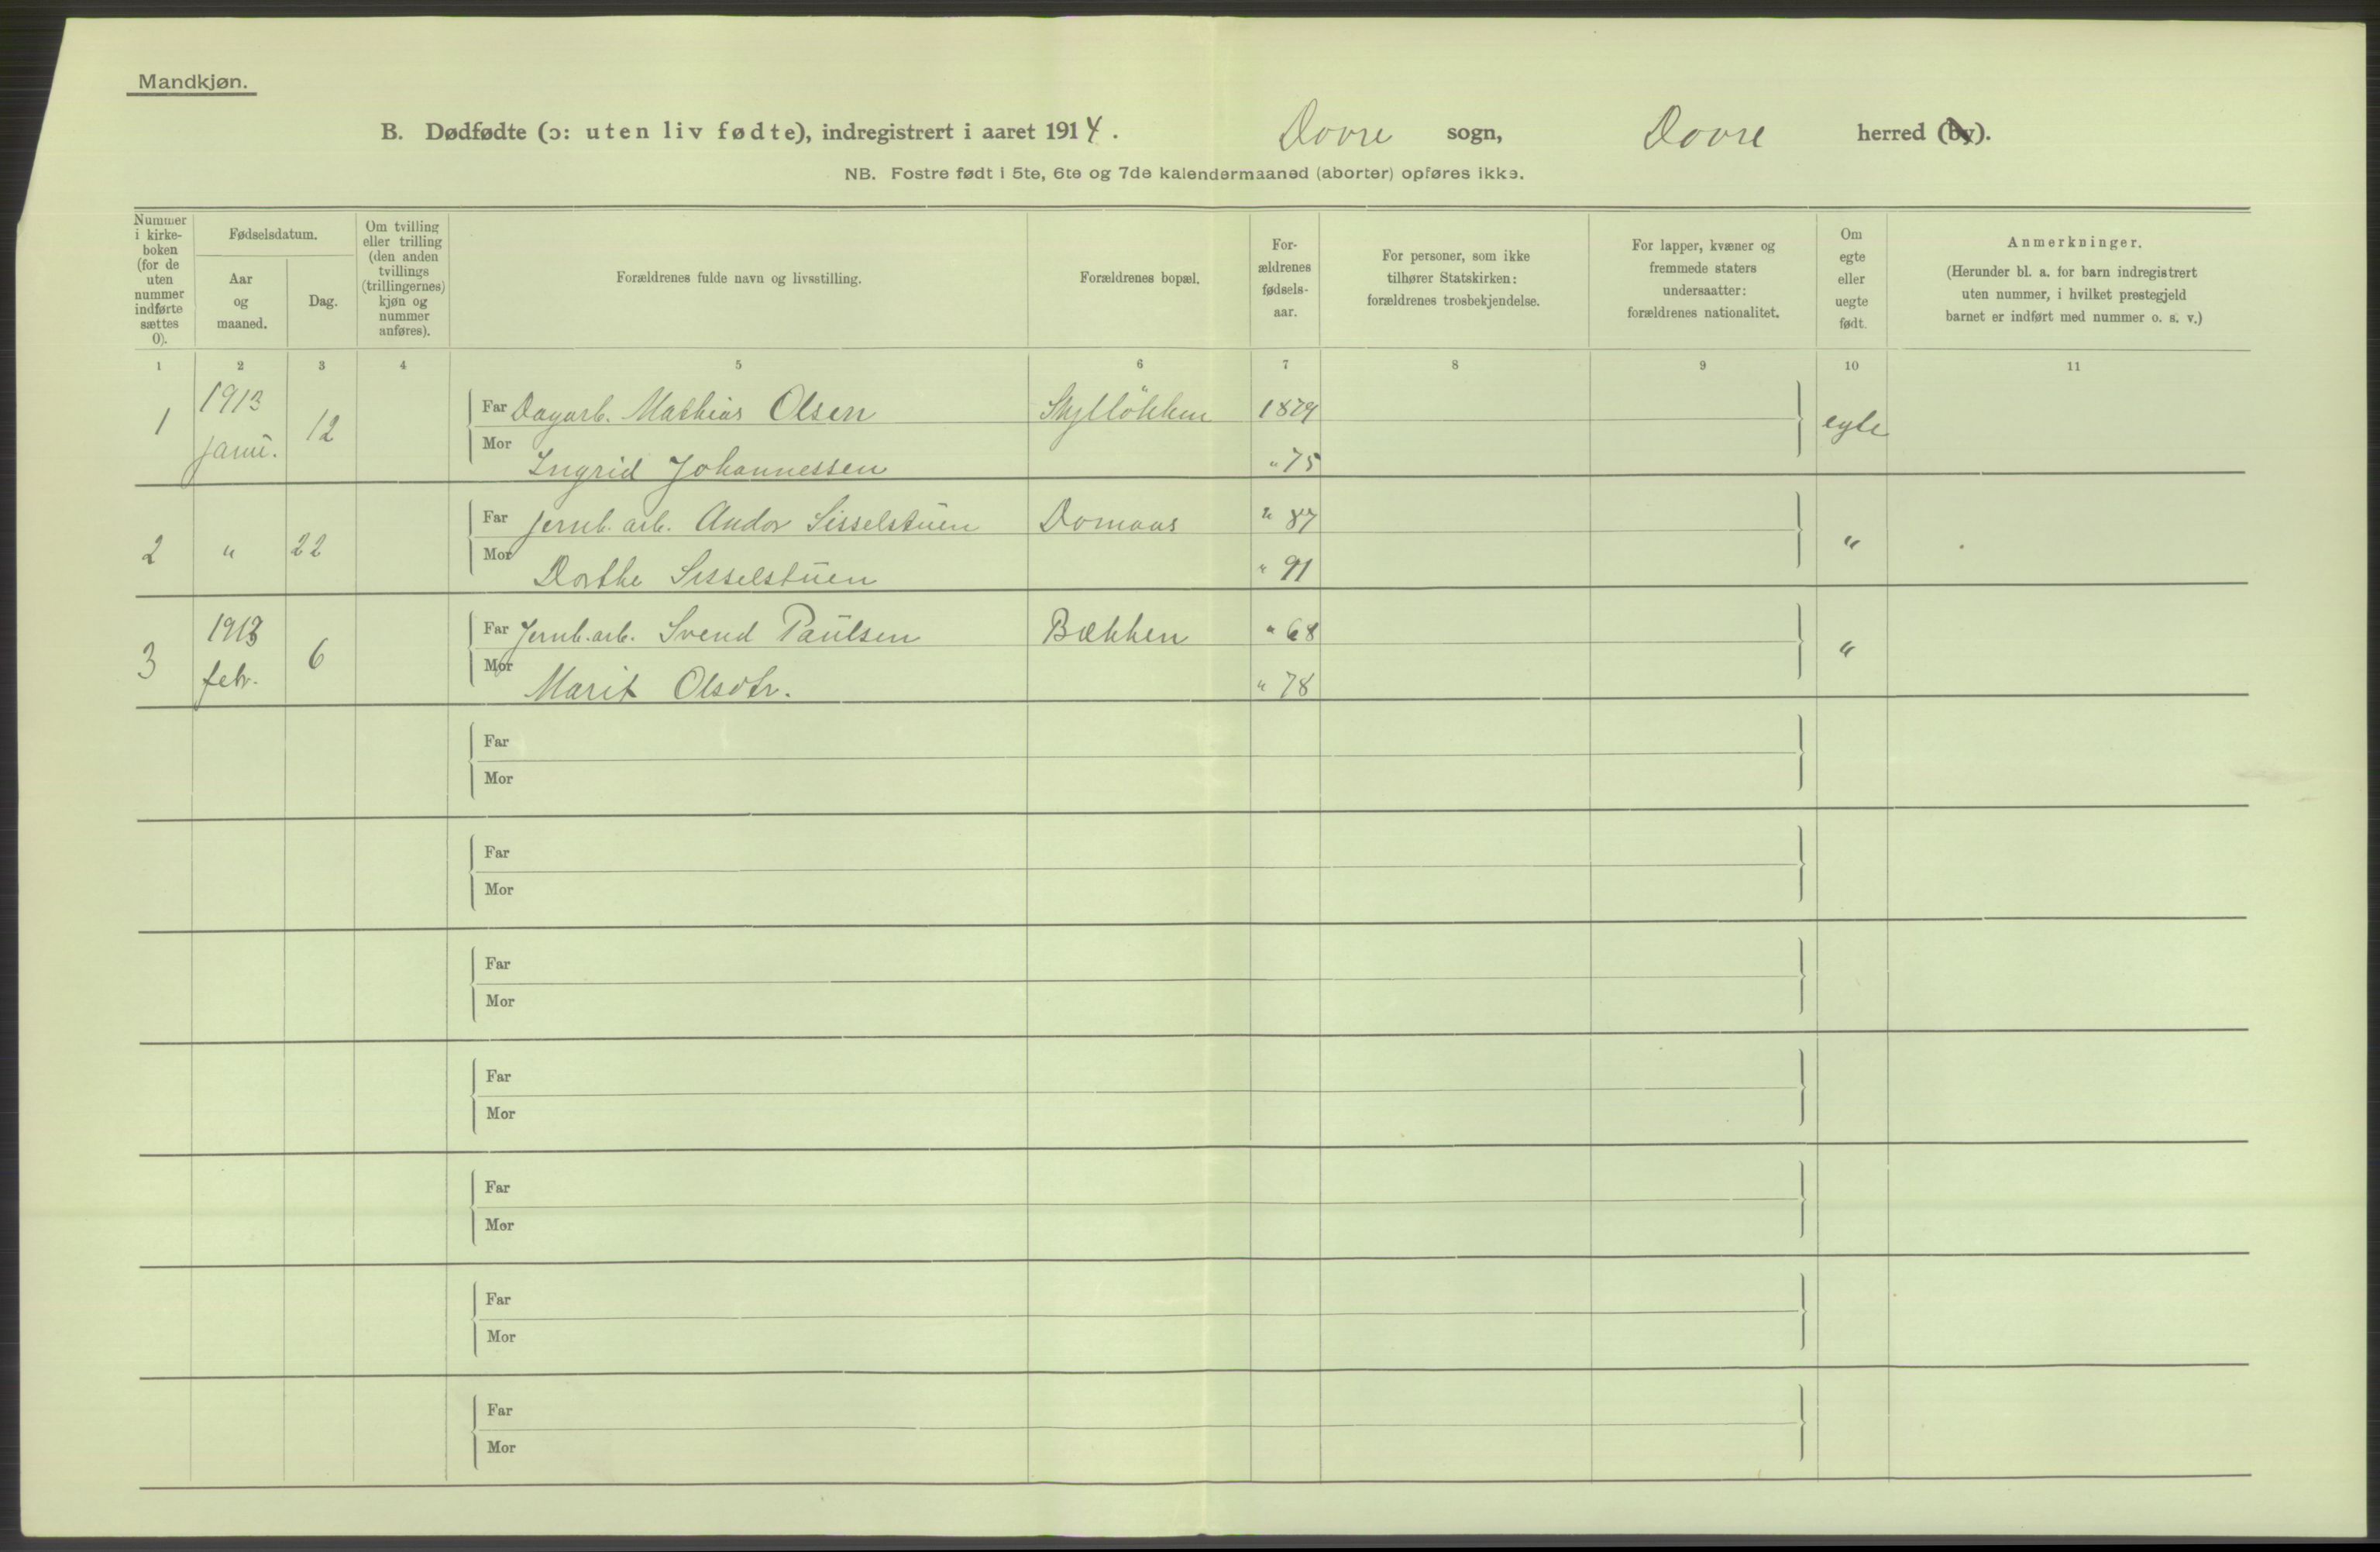 Mandkjøn.
B. Dødfødte (ɔ: uten liv fødte), indregistrert i aaret 1914. Dovre sogn, Dovre herred (by).
NB. Fostre født i 5te, 6te og 7de kalendermaaned (aborter) opføres ikke.
Nummer i kirke-boken (for de uten nummer indførte sættes 0).
Fødselsdatum.
Aar og maaned.
Dag.
Om tvilling eller trilling (den anden tvillings (trillingernes) kjøn og nummer anføres).
Forældrenes fulde navn og livsstilling.
Forældrenes bopæl.
For-ældrenes fødsels-aar.
For personer, som ikke tilhører Statskirken: forældrenes trosbekjendelse.
For lapper, kvæner og fremmede staters undersaatter: forældrenes nationalitet.
Om egte eller uegte født.
Anmerkninger.
(Herunder bl. a. for barn indregistrert uten nummer, i hvilket prestegjeld barnet er indført med nummer o. s. v.)
1 2 3 4 5 6 7 8 9 10 11
1 1913 janu. 12 Far Dagarb. Mathias Olsen 1879 egte
Mor Ingrid Johannessen " 75
2 " 22 Far Jernb. arb. Andor Sisselstuen Domaas " 87 "
Mor Dorthe Sisselstuen " 91
3 1913 febr. 6 Far Jernb. arb. Svend Paulsen Bækken " 68 "
Mor Marit Olsdtr. " 78
Far
Mor
Far
Mor
Far
Mor
Far
Mor
Far
Mor
Far
Mor
Far
Mor